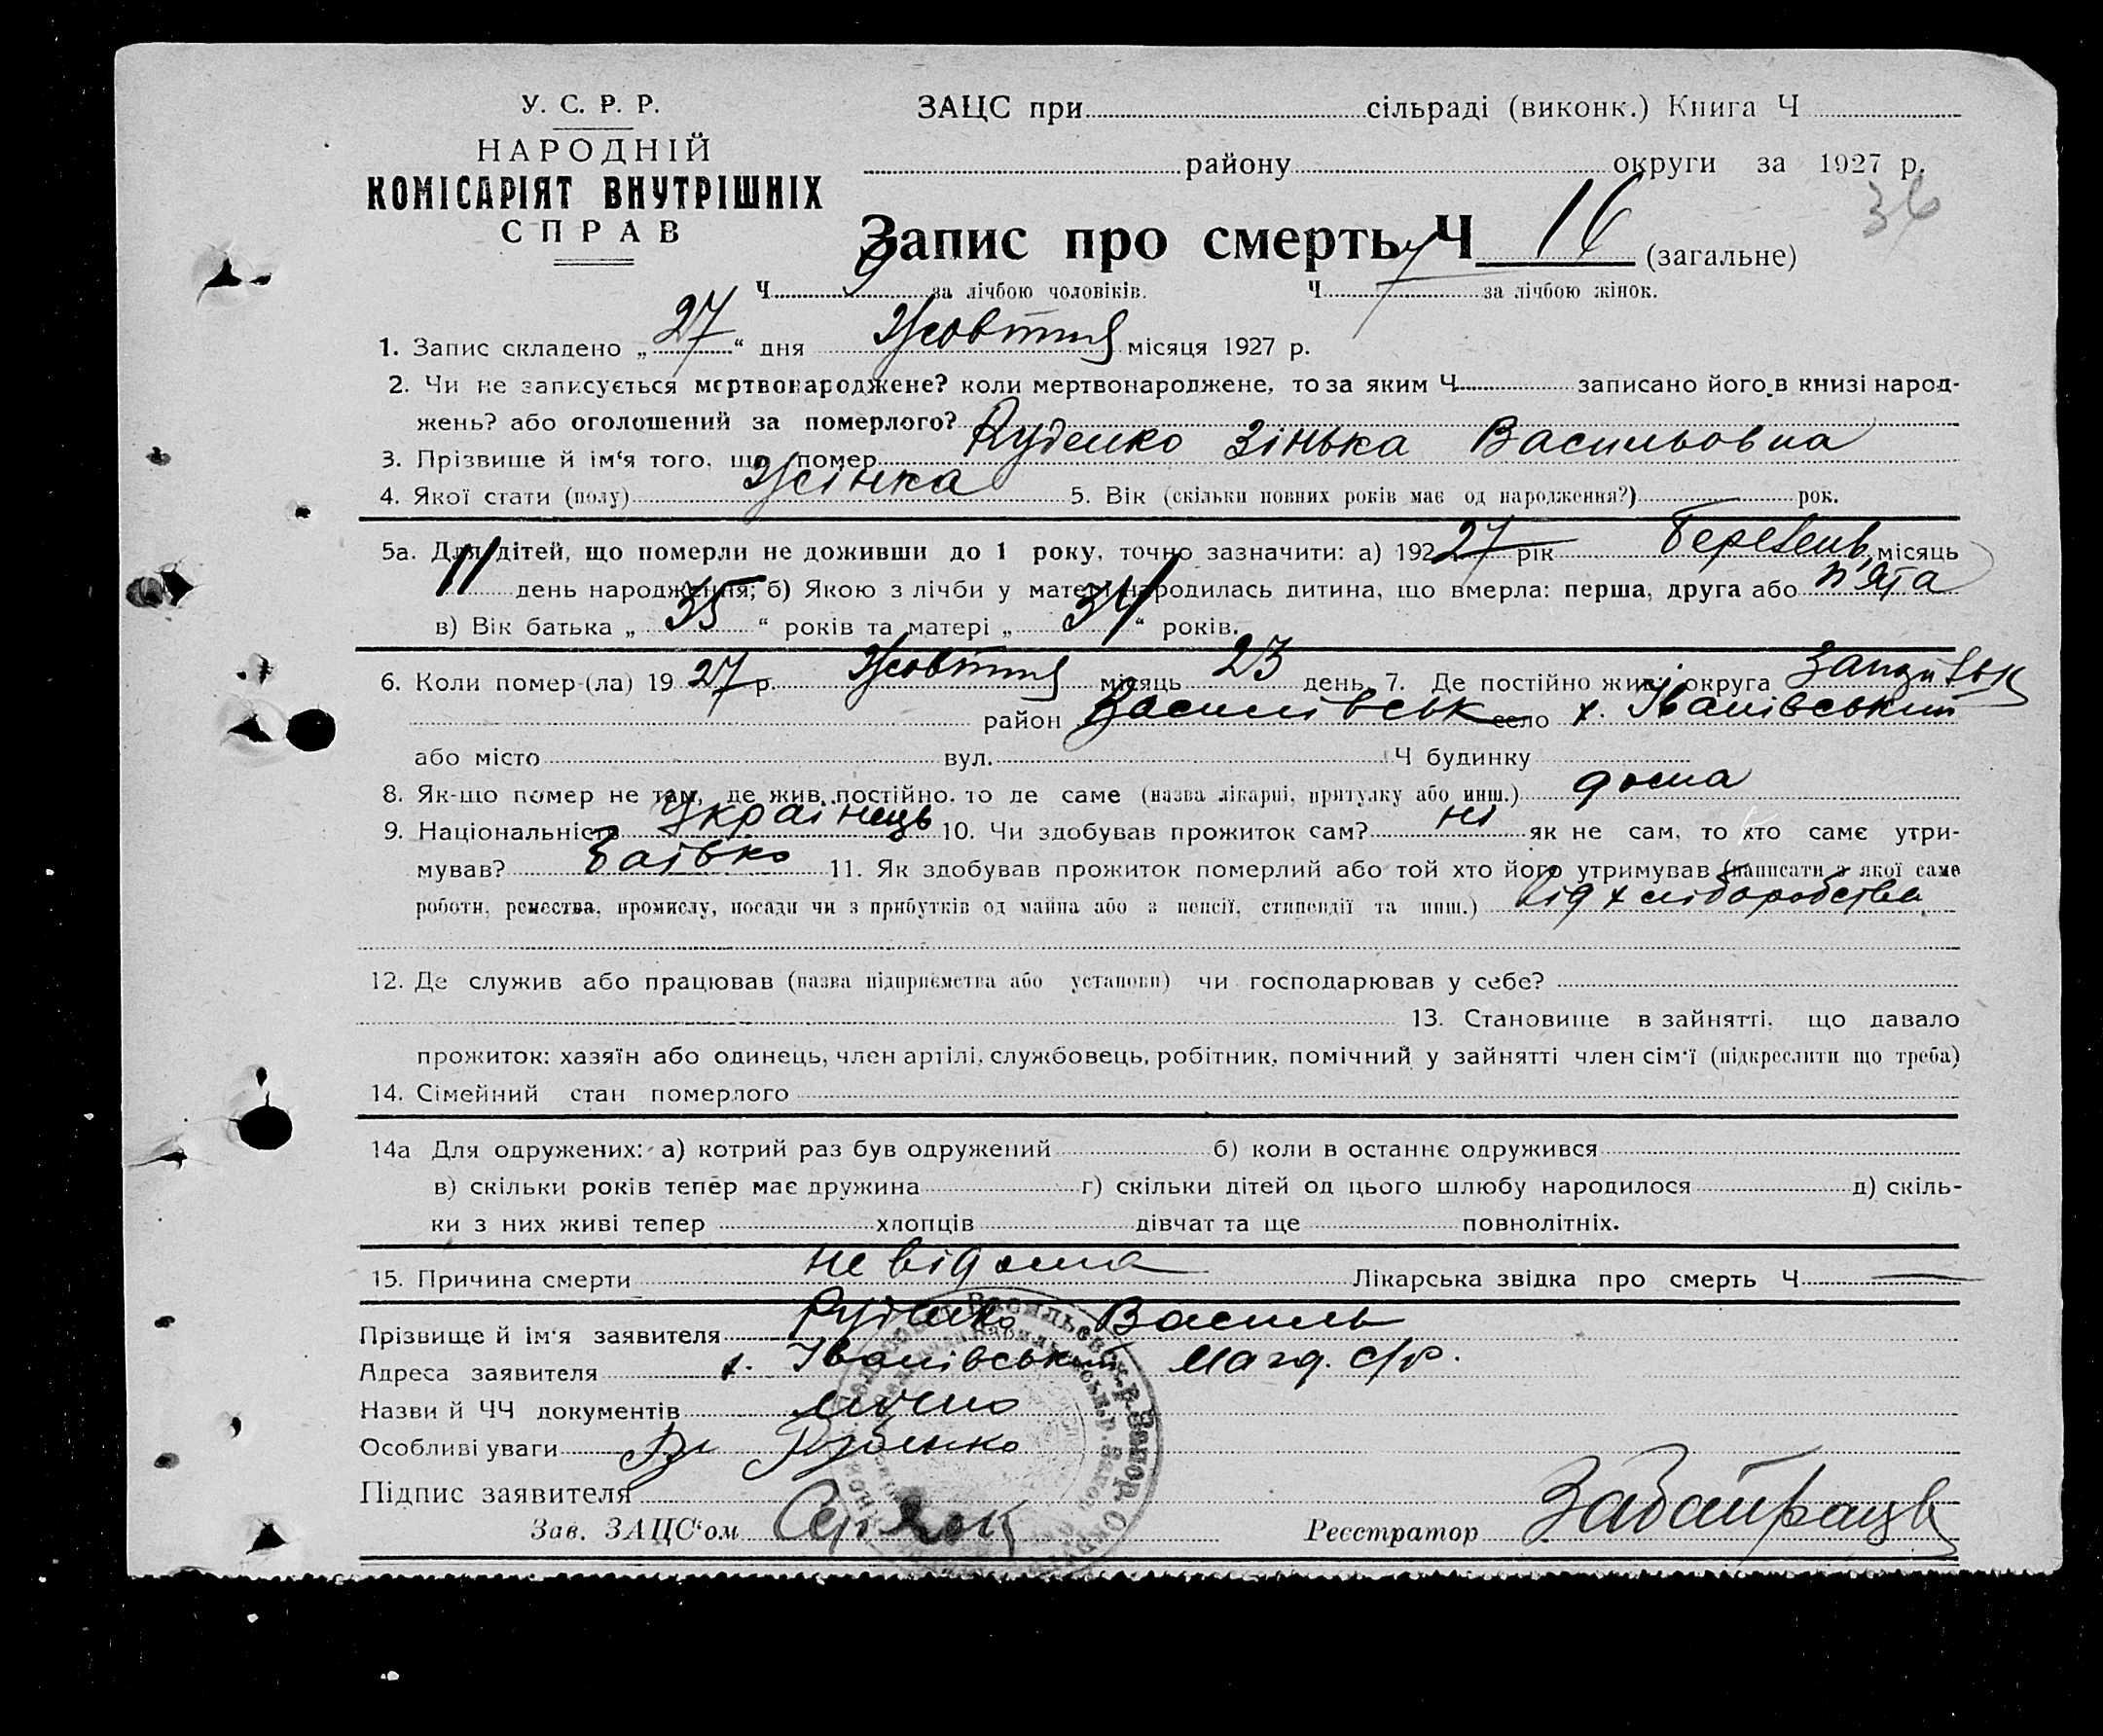 У. С. Р. Р.
НАРОДНІЙ
КОМІСАРІЯТ ВНУТРІШНІХ
СПРАВ
ЗАЦС при сільраді (виконк.) Книга Ч
району округи за 1927 р.
36
Запис про смерть Ч 16 (загальне)
Ч 9 за лічбою чоловіків. Ч 7 за лічбою жінок.
1. Запис складено „ 27 “ дня Жовтня місяця 1927 р.
2. Чи не записується мертвонароджене? коли мертвонароджене, то за яким Ч записано його в книзі народ-
жень? або оголошений за померлого?
3. Прізвище й ім‘я того, що помер Руденко Зінька Васильовна
4. Якої стати (полу) Жінка 5. Вік (скільки повних років має од народження?) — рок.
5а. Для дітей, що померли не доживши до 1 року, точно зазначити: а) 192 27 рік Березень місяць
11 день народження; б) Якою з лічби у матері народилась дитина, що вмерла: перша, друга або п'ята
в) Вік батька „ 35 “ років та матері „ 34 “ років.
6. Коли помер-(ла) 19 27 р. Жовтня місяць 23 день 7. Де постійно жив: округа
район Василівськ село х. Іванівський
або місто вул. Ч будинку
8. Як-що помер не там, де жив постійно, то де саме (назва лікарні, притулку або инш.) дома
9. Національність Українець 10. Чи здобував прожиток сам? ні як не сам, то хто саме утри-
мував? Батько 11. Як здобував прожиток померлий або той хто його утримував (написати з якої саме
роботи, ремества, промислу, посади чи з прибутків од майна або з пенсії, стипендії та инш.) від хліборобства
12. Де служив або працював (назва підприємства або установи) чи господарював у себе?
13. Становище в зайнятті, що давало
прожиток: хазяїн або одинець, член артілі, службовець, робітник, помічний у зайнятті член сім'ї (підкреслити що треба)
14. Сімейний стан померлого
14а Для одружених: а) котрий раз був одружений б) коли в останнє одружився
в) скільки років тепер має дружина г) скільки дітей од цього шлюбу народилося д) скіль-
ки з них живі тепер хлопців дівчат та ще повнолітніх.
15. Причина смерти невідома Лікарська звідка про смерть Ч —
Прізвище й ім'я заявителя Руденко Василь
Адреса заявителя х. Іванівський Магд. с/р.
Назви й ЧЧ документів лично
Особливі уваги Руденко
Підпис заявителя
Зав. ЗАЦС‘ом Реєстратор